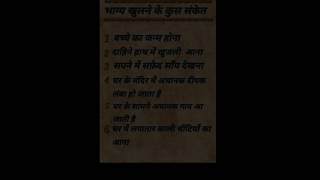 भाग्य खुसने के कुस संकेत
1 बच्चे का जन्म होना
2 दाहिने हाथ में खुजली आना
3 सपने में सफ़ेद साँप देखना
4 घर के मंदिर में अचानक दीपक
लंबा हो जाता है
5 घर के सामने अचानक गाय आ
जाती है
6 घर में लगातार काली चींटियों का
आना